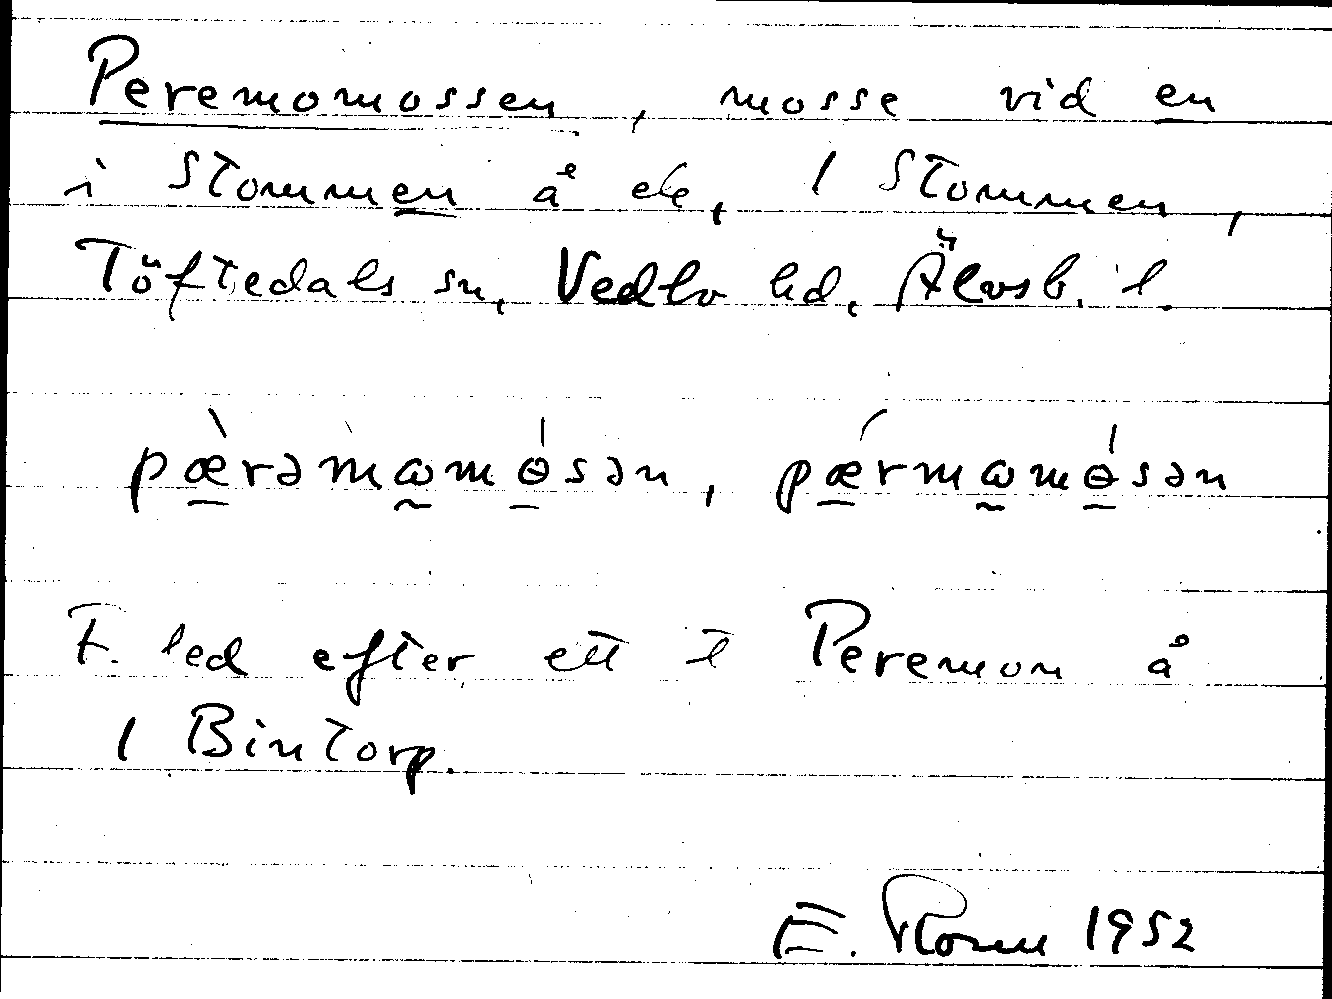 Peremomossen, mosse vid en
i Stommen å ek, 1 Stommen,
Töftedals sn, Vedbo hd, Älvsb. l.
pæ̀rəmωmɵ́sən, pǽrmωmɵ́sən
F. led efter ett t Peremon å
1 Bintorp.
E. 1952